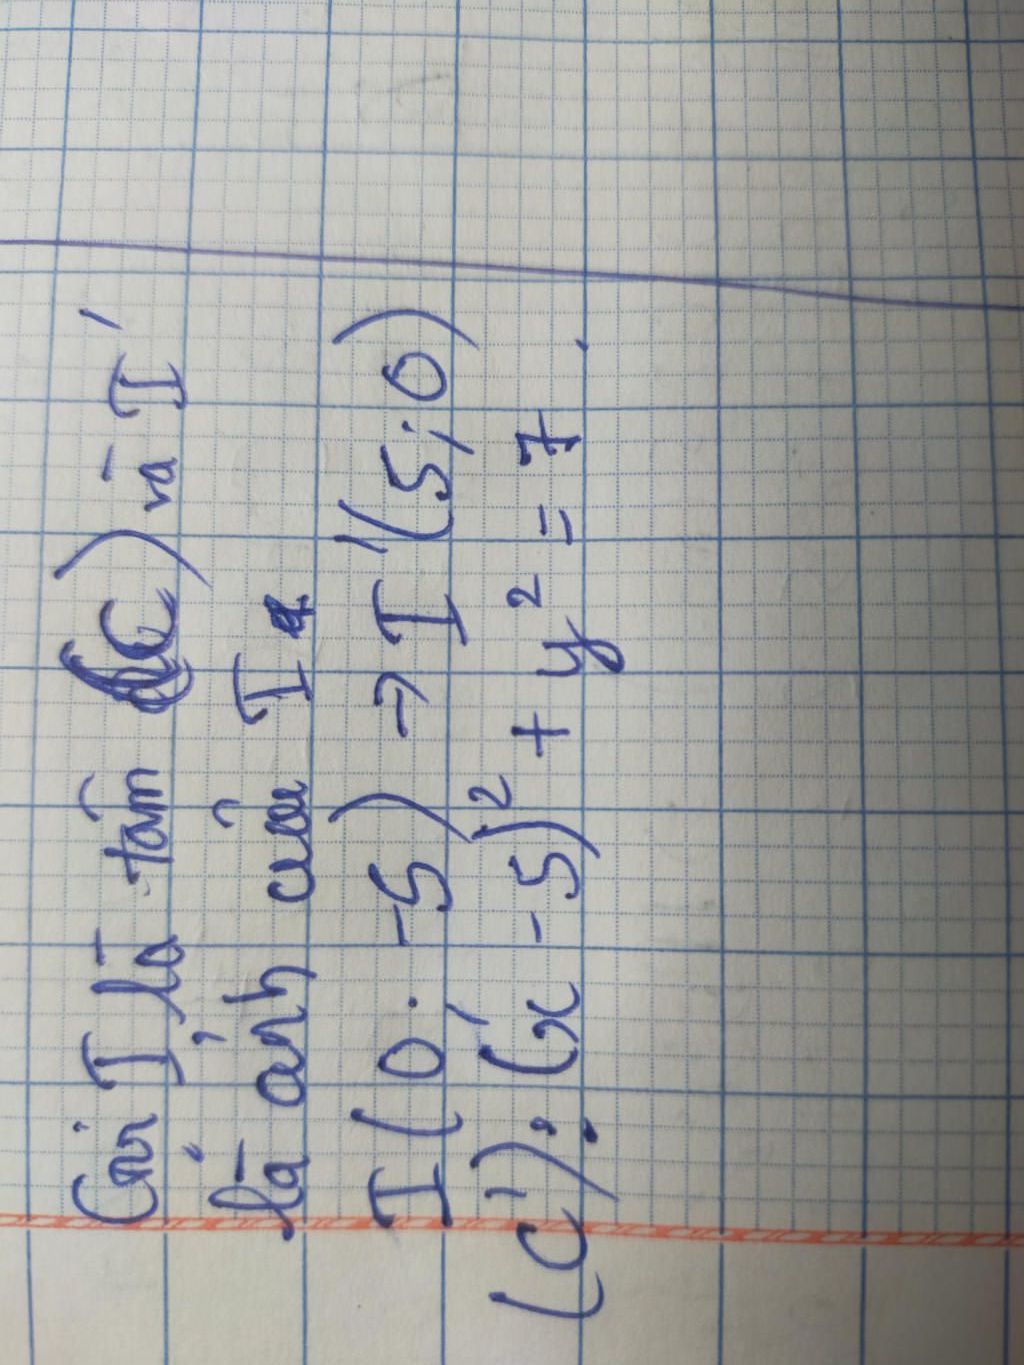 Gọi I là tâm (C) và I'
là ảnh của I
I (0; -5) → I' (5; 0)
(C'): (x - 5)² + y² = 7